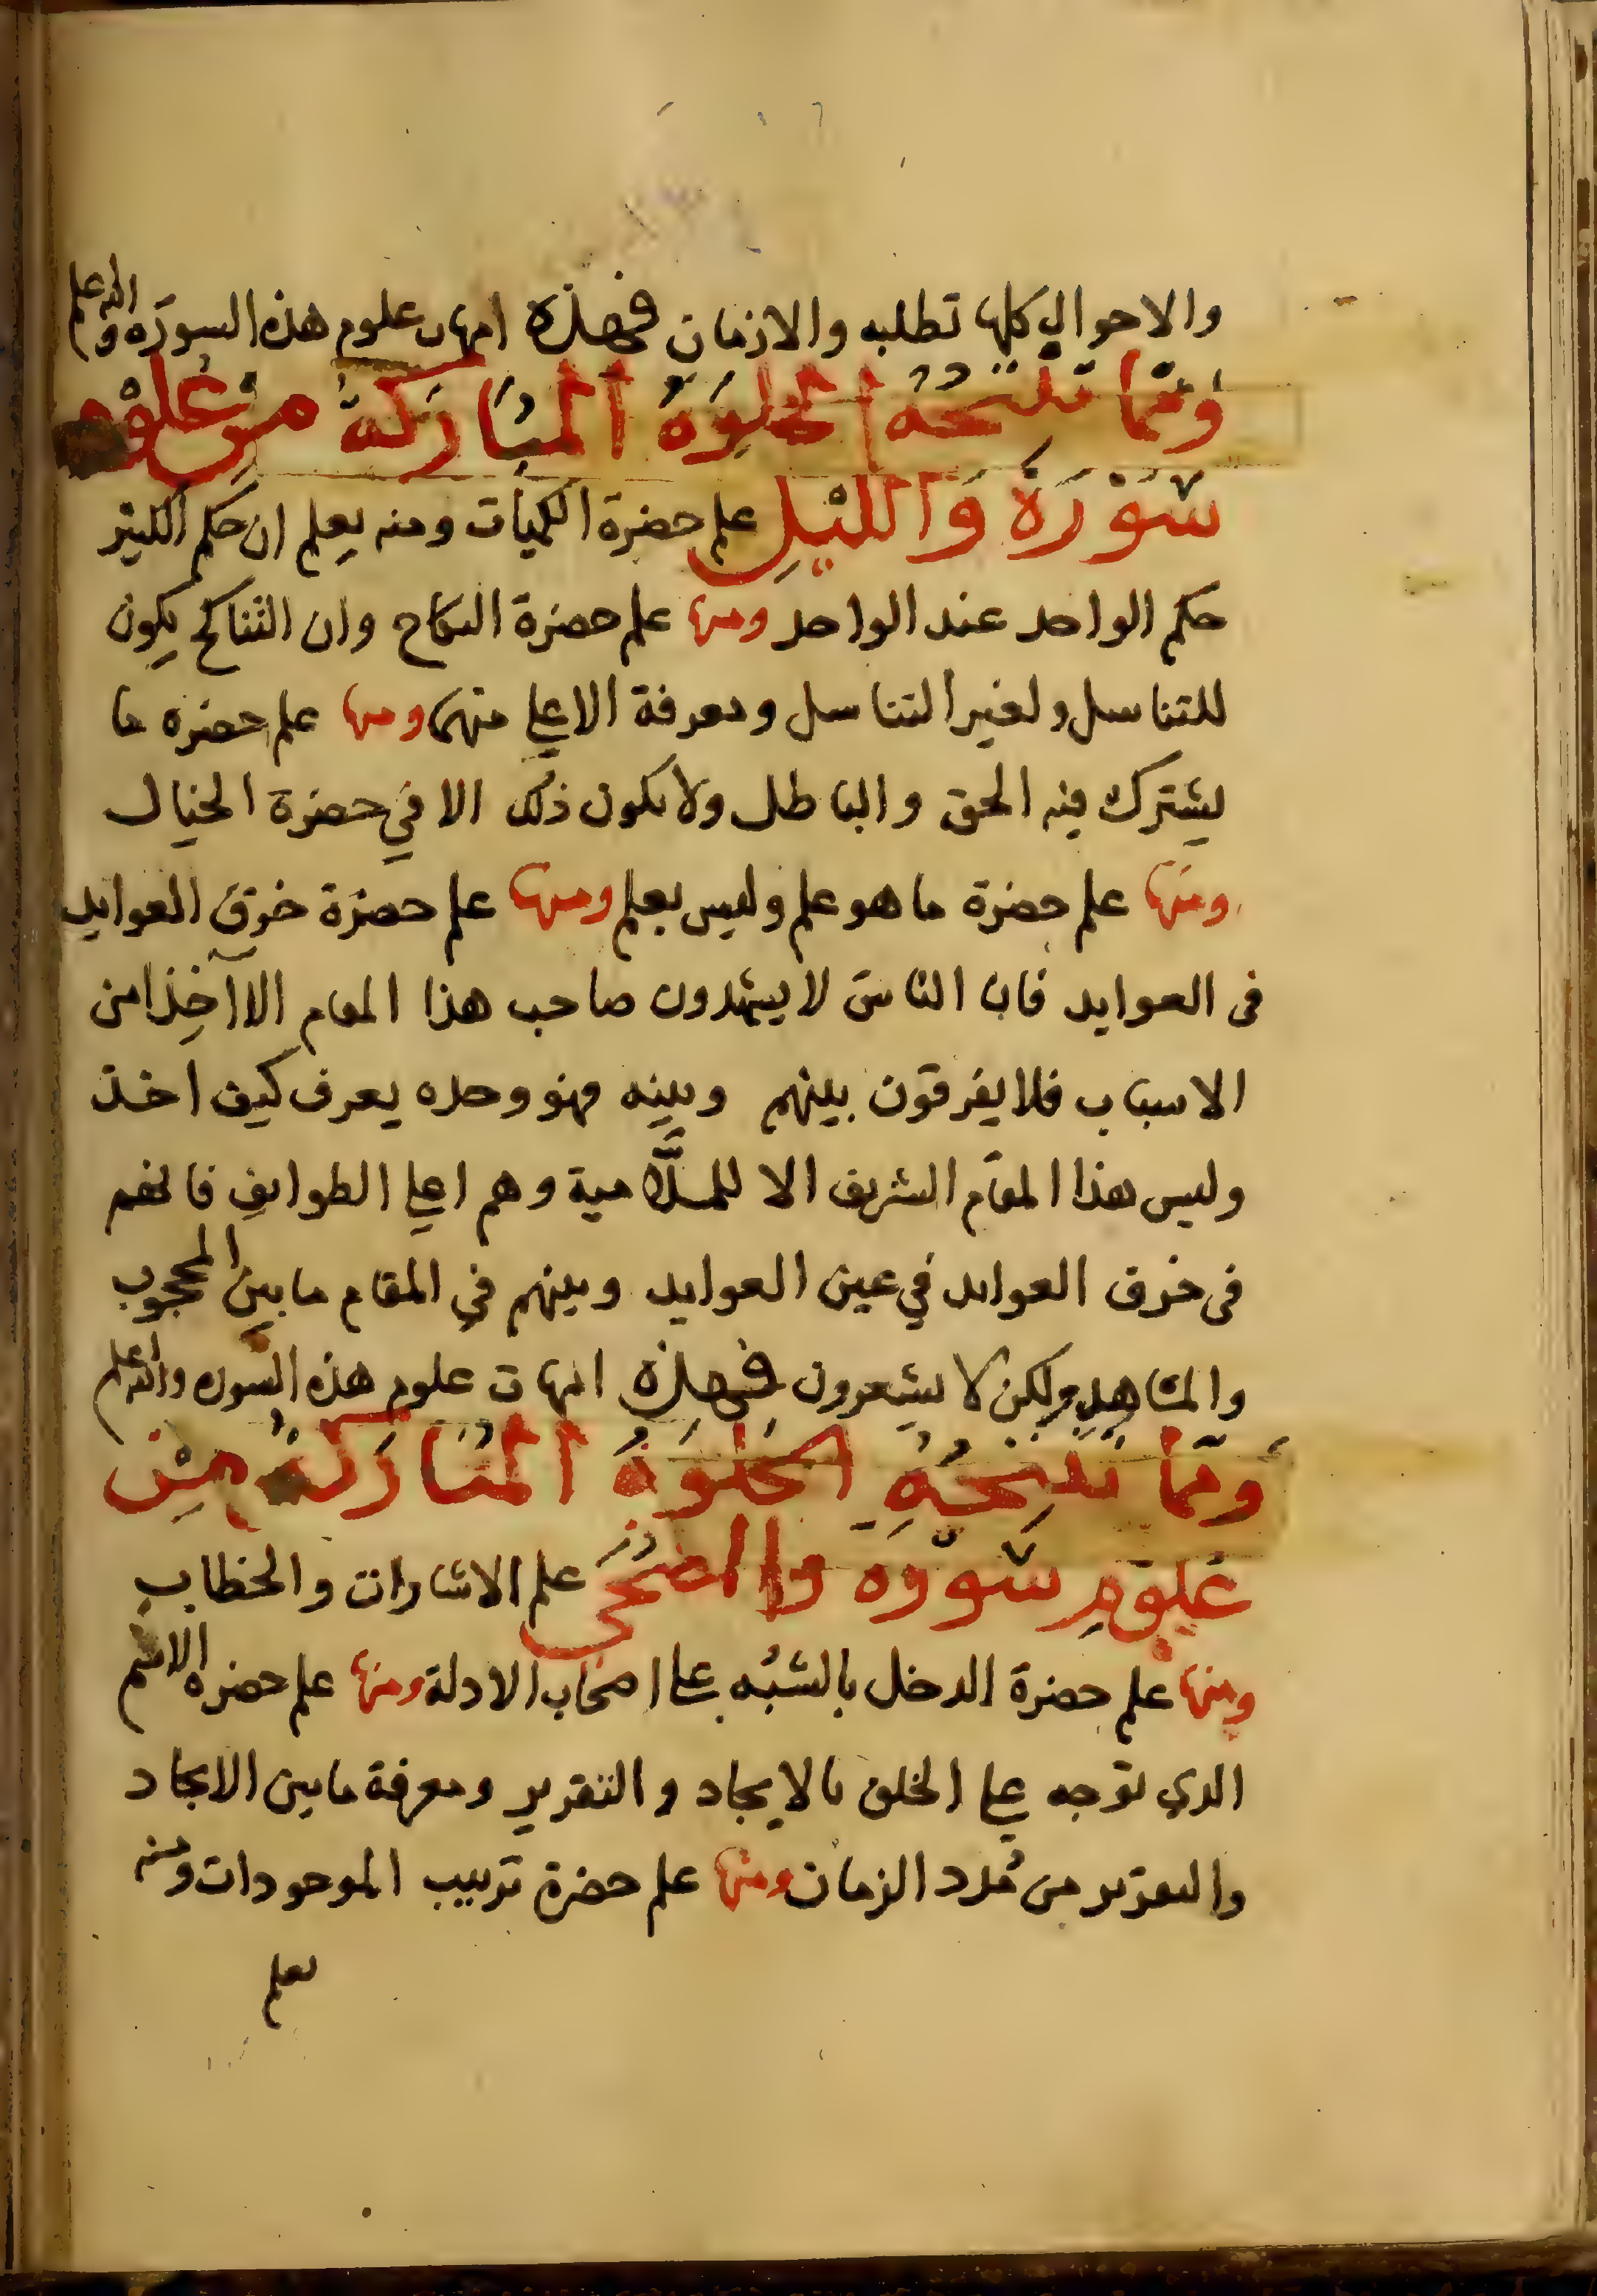 والاحوال كلها تطلبه والازمان فهذه امهات علوم هذه السورة والله اعلم
ومما تنتجه الخلوة المباركة من علوم
سورة والليل علم حضرة الكميات ومنه يعلم ان حكم الكثير
حكم الواحد عند الواحد ومنها علم حضرة النكاح وان التناكح يكون
للتناسل ولغير التناسل ومعرفة الاعلي منهما ومنها علم حضره ما
يشترك فيه الحق والباطل ولا يكون ذلك الا في حضرة الخيال
ومنها علم حضرة ما هو علم وليس بعلم ومنها علم حضرة خرق العوايد
في العوايد فان الناس لا يشهدون صاحب هذا المقام الا اخذا من
الاسباب فلا يفرقون بينهم وبينه فهو وحده يعرف كيف اخذ
وليس هذا المقام الشريف الا للملامية وهم اعلي الطوايف فانهم
في خرق العوايد في عين العوايد وبينهم في المقام ما بين المحجوب
والمشاهد ولكن لا يشعرون فهذه امهات علوم هذه السوره والله اعلم
ومما تنتجه الخلوة المباركة من
علوم سورة والضحى علم الاشارات والخطاب
ومنها علم حضرة الدخل بالشبه علي اصحاب الادلة ومنها علم حضره الاسم
الذي توجه علي الخلق بالايجاد والتقدير ومعرفة ما بين الايجاد
والتقدير من مدد الزمان ومنها علم حضرة ترتيب الموجودات ومنه
يعلم